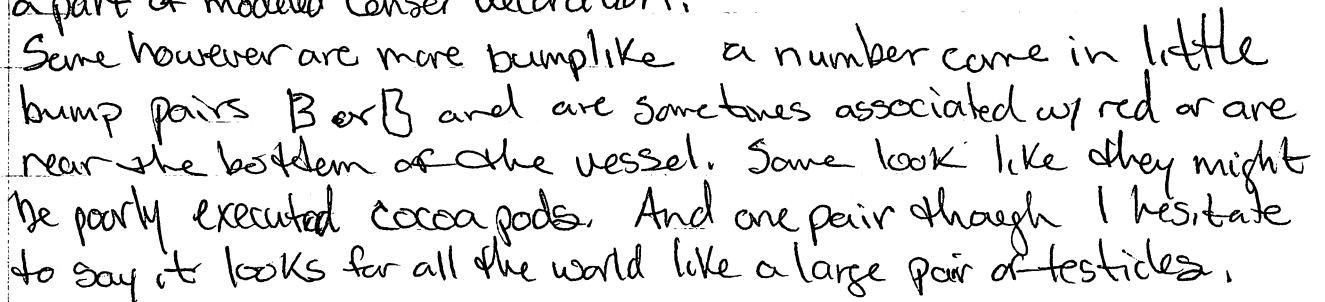 a part of modeled censer decoration.
Some however are more bumplike a number come in little
bump pairs B or B and are sometimes associated w/ red or are
near the bottem of the vessel. Some look like they might
be poorly executed cocoa pods. And one pair though I hesitate
to say it looks for all the world like a large pair of testicles.